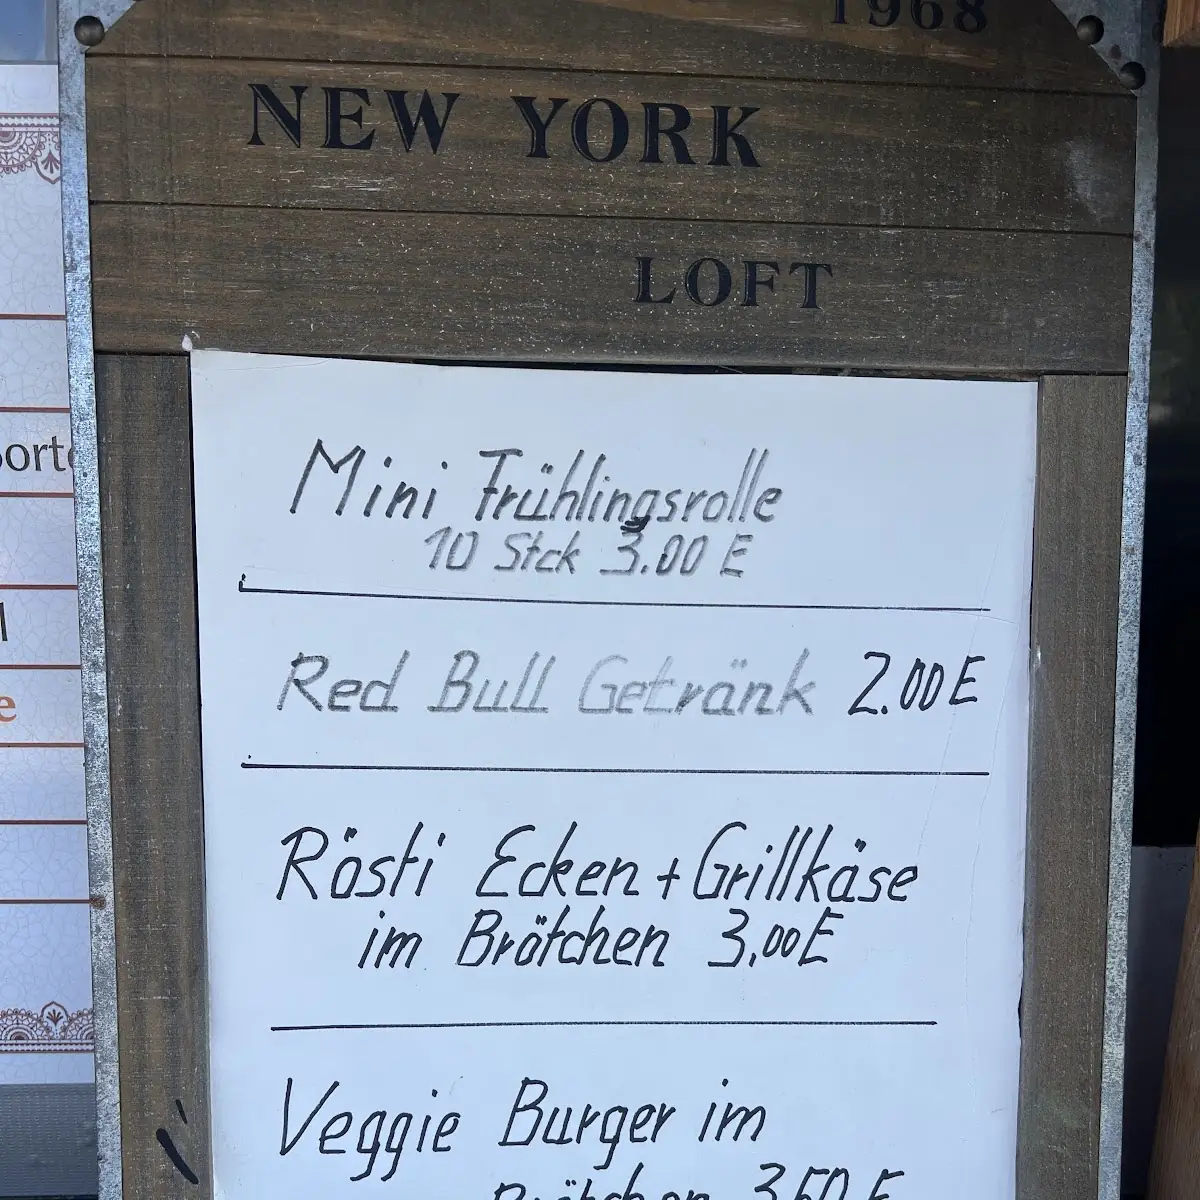 1968
NEW YORK
LOFT
Mini Frühlingsrolle
10 Stck 3.00 E
Red Bull Getränk 2.00 E
Rösti Ecken + Grillkäse
im Brötchen 3,00 E
Veggie Burger im
Brötchen 3,50 E